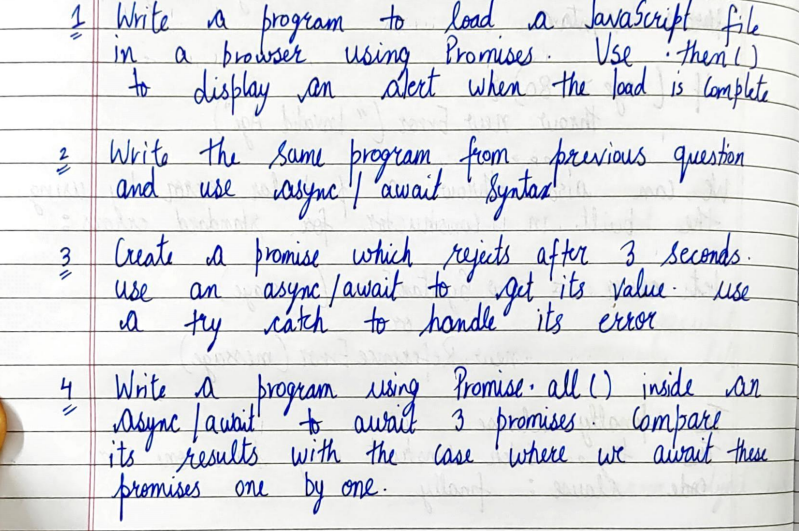 1 Write a program to load a JavaScript file
in a browser using Promises. Use .then()
to display an alert when the load is complete
2 Write the same program from previous question
and use async/await Syntax
3 Create a promise which rejects after 3 seconds.
use an async/await to get its value. use
a try catch to handle its error
4 Write a program using Promise.all() inside an
async/await to await 3 promises. Compare
its results with the case where we await these
promises one by one.